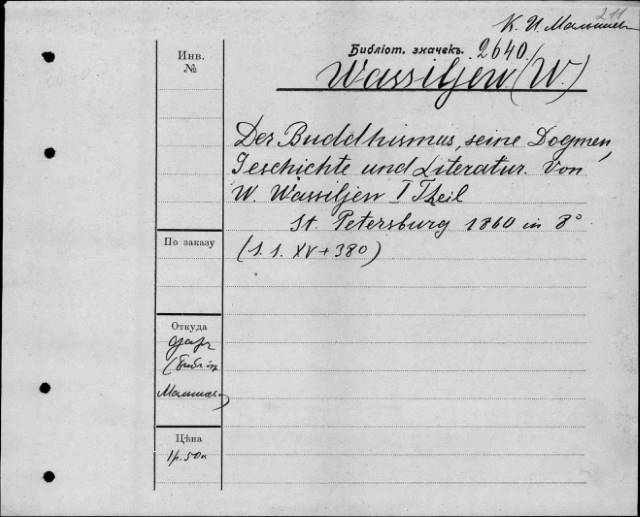 211
К. И. Малышев
Библіот. значекъ. 2640.
Wassiljew (W.)
Инв.
№
Der Buddhismus, seine Dogmen,
Geschichte und Literatur. Von
W. Wassiljew I Theil
St. Petersburg 1860 in 8°
(S. S. XV + 380)
По заказу
Откуда
дар
(библ
Малышева)
Цѣна
1р. 50к